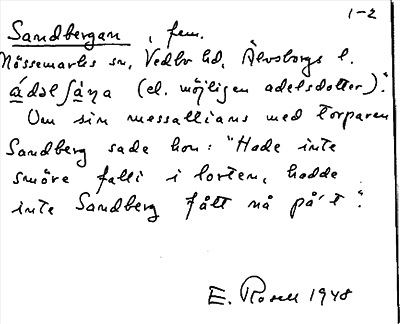 1-2
Sandbergan, fem.
Nössemarks sn, Vedbo hd, Älvsborgs l.
ádəlʃàŋa (el. möjligen adelsdotter)."
Om sin messallians med torparen
Sandberg sade hon: "Hade inte
smöre falli i lorten, hadde
inte Sandberg fått nå på't".
E. Rosell 1948